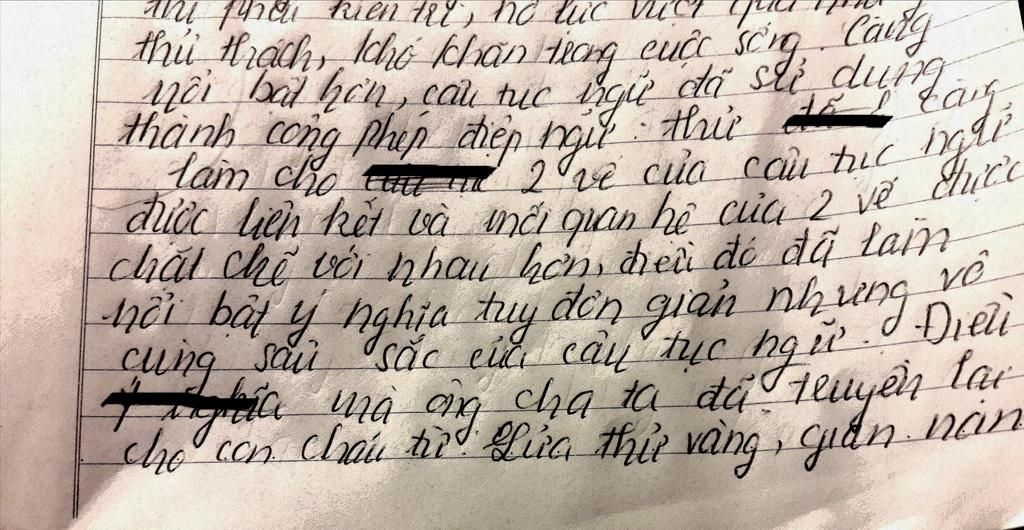 thì phải kiên trì, nỗ lực vượt qua
thử thách, khó khăn trong cuộc sống. Càng
nổi bật hơn, câu tục ngữ đã sử dụng
thành công phép điệp ngữ: thử càng
làm cho 2 vế của câu tục ngữ
được liên kết và mối quan hệ của 2 vế được
chặt chẽ với nhau hơn, điều đó đã làm
nổi bật ý nghĩa tuy đơn giản nhưng vô
cùng sâu sắc của câu tục ngữ. Điều
mà ông cha ta đã truyền lại
cho con cháu từ: Lửa thử vàng, gian nan